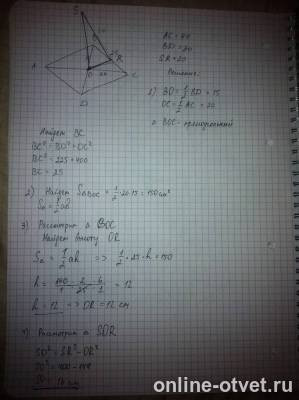 S
B
A
R
O
C
D
AC = 40
BD = 30
SR = 20
Решение:
1) BO = 1/2 BD = 15
OC = 1/2 AC = 20
△ BOC - прямоугольный
Найдем BC
BC² = BO² + OC²
BC² = 225 + 400
BC = 25
2) Найдем S△BOC = 1/2 · 20 · 15 = 150 см²
S△ = 1/2 ab
3) Рассмотрим △ BOC
Найдем высоту OR
S△ = 1/2 ah => 1/2 · 25 · h = 150
h = = 12
h = 12 => OR = 12 см
4) Рассмотрим △ SOR
SO² = SR² - OR²
SO² = 400 - 144
SO = 16 см
online-otvet.ru